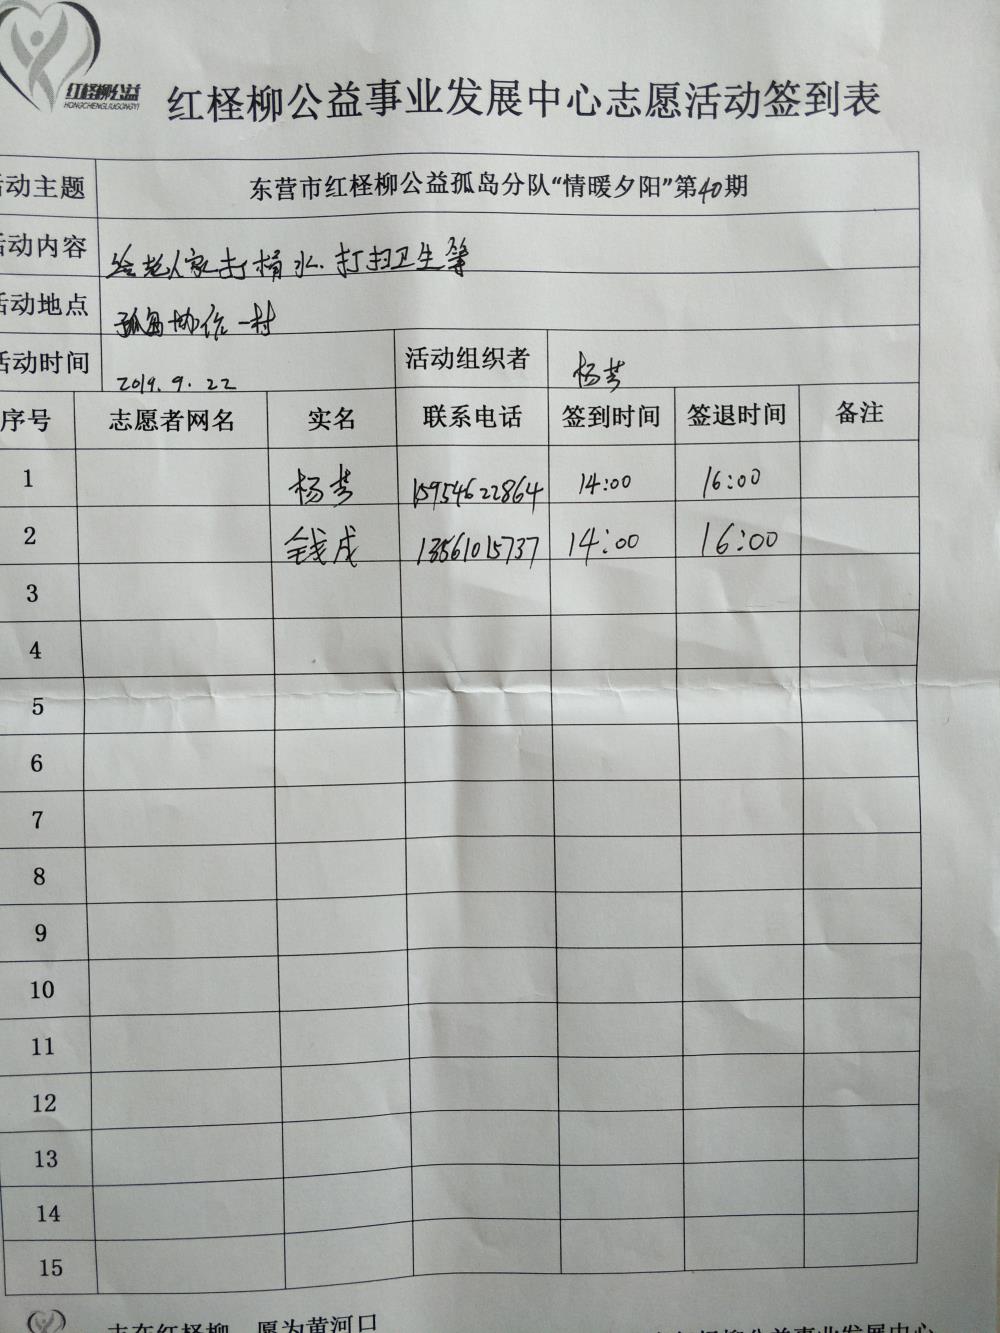 红柽柳公益
HONGCHENGLIUGONGYI
红柽柳公益事业发展中心志愿活动签到表
活动主题 东营市红柽柳公益孤岛分队“情暖夕阳”第40期
活动内容 给老人家打捎水.打扫卫生等
活动地点 孤岛协作一村
活动时间 2019.9.22 活动组织者 杨芳
序号 志愿者网名 实名 联系电话 签到时间 签退时间 备注
1 杨芳 15954622864 14:00 16:00
2 钱成 13561015737 14:00 16:00
3
4
5
6
7
8
9
10
11
12
13
14
15
志在红柽柳 愿为黄河口 红柽柳公益事业发展中心